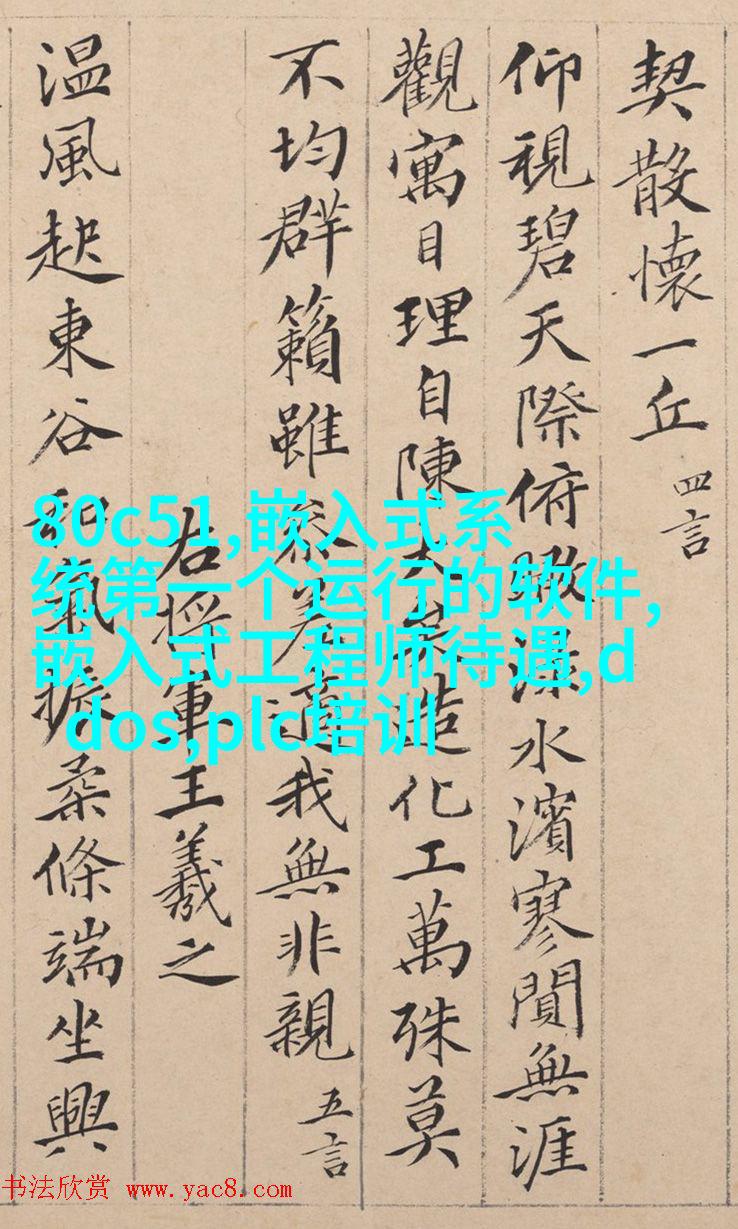 契散懷一丘 四言
仰視碧天際俯瞰淥水濱寥閴無涯
觀寓目理自陳大矣造化工萬殊莫
不均群籟雖參差適我無非親 五言
右將軍王羲之
温風起東谷和氣振柔條端坐興
80c51,嵌入式系
统第一个运行的软件,
嵌入式工程师待遇,d
dos,plc培训
书法欣赏 www.yac8.com